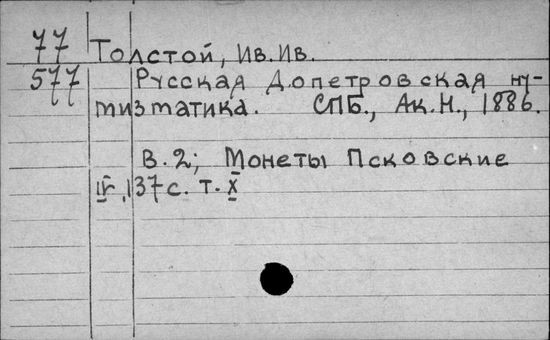 77 Толстой, Ив. Ив.
577 Русская Допетровская ну-
мизматика. СПБ., Ак.Н., 1886.
В.2; Монеты Псковские
IV, 137 с. т. X